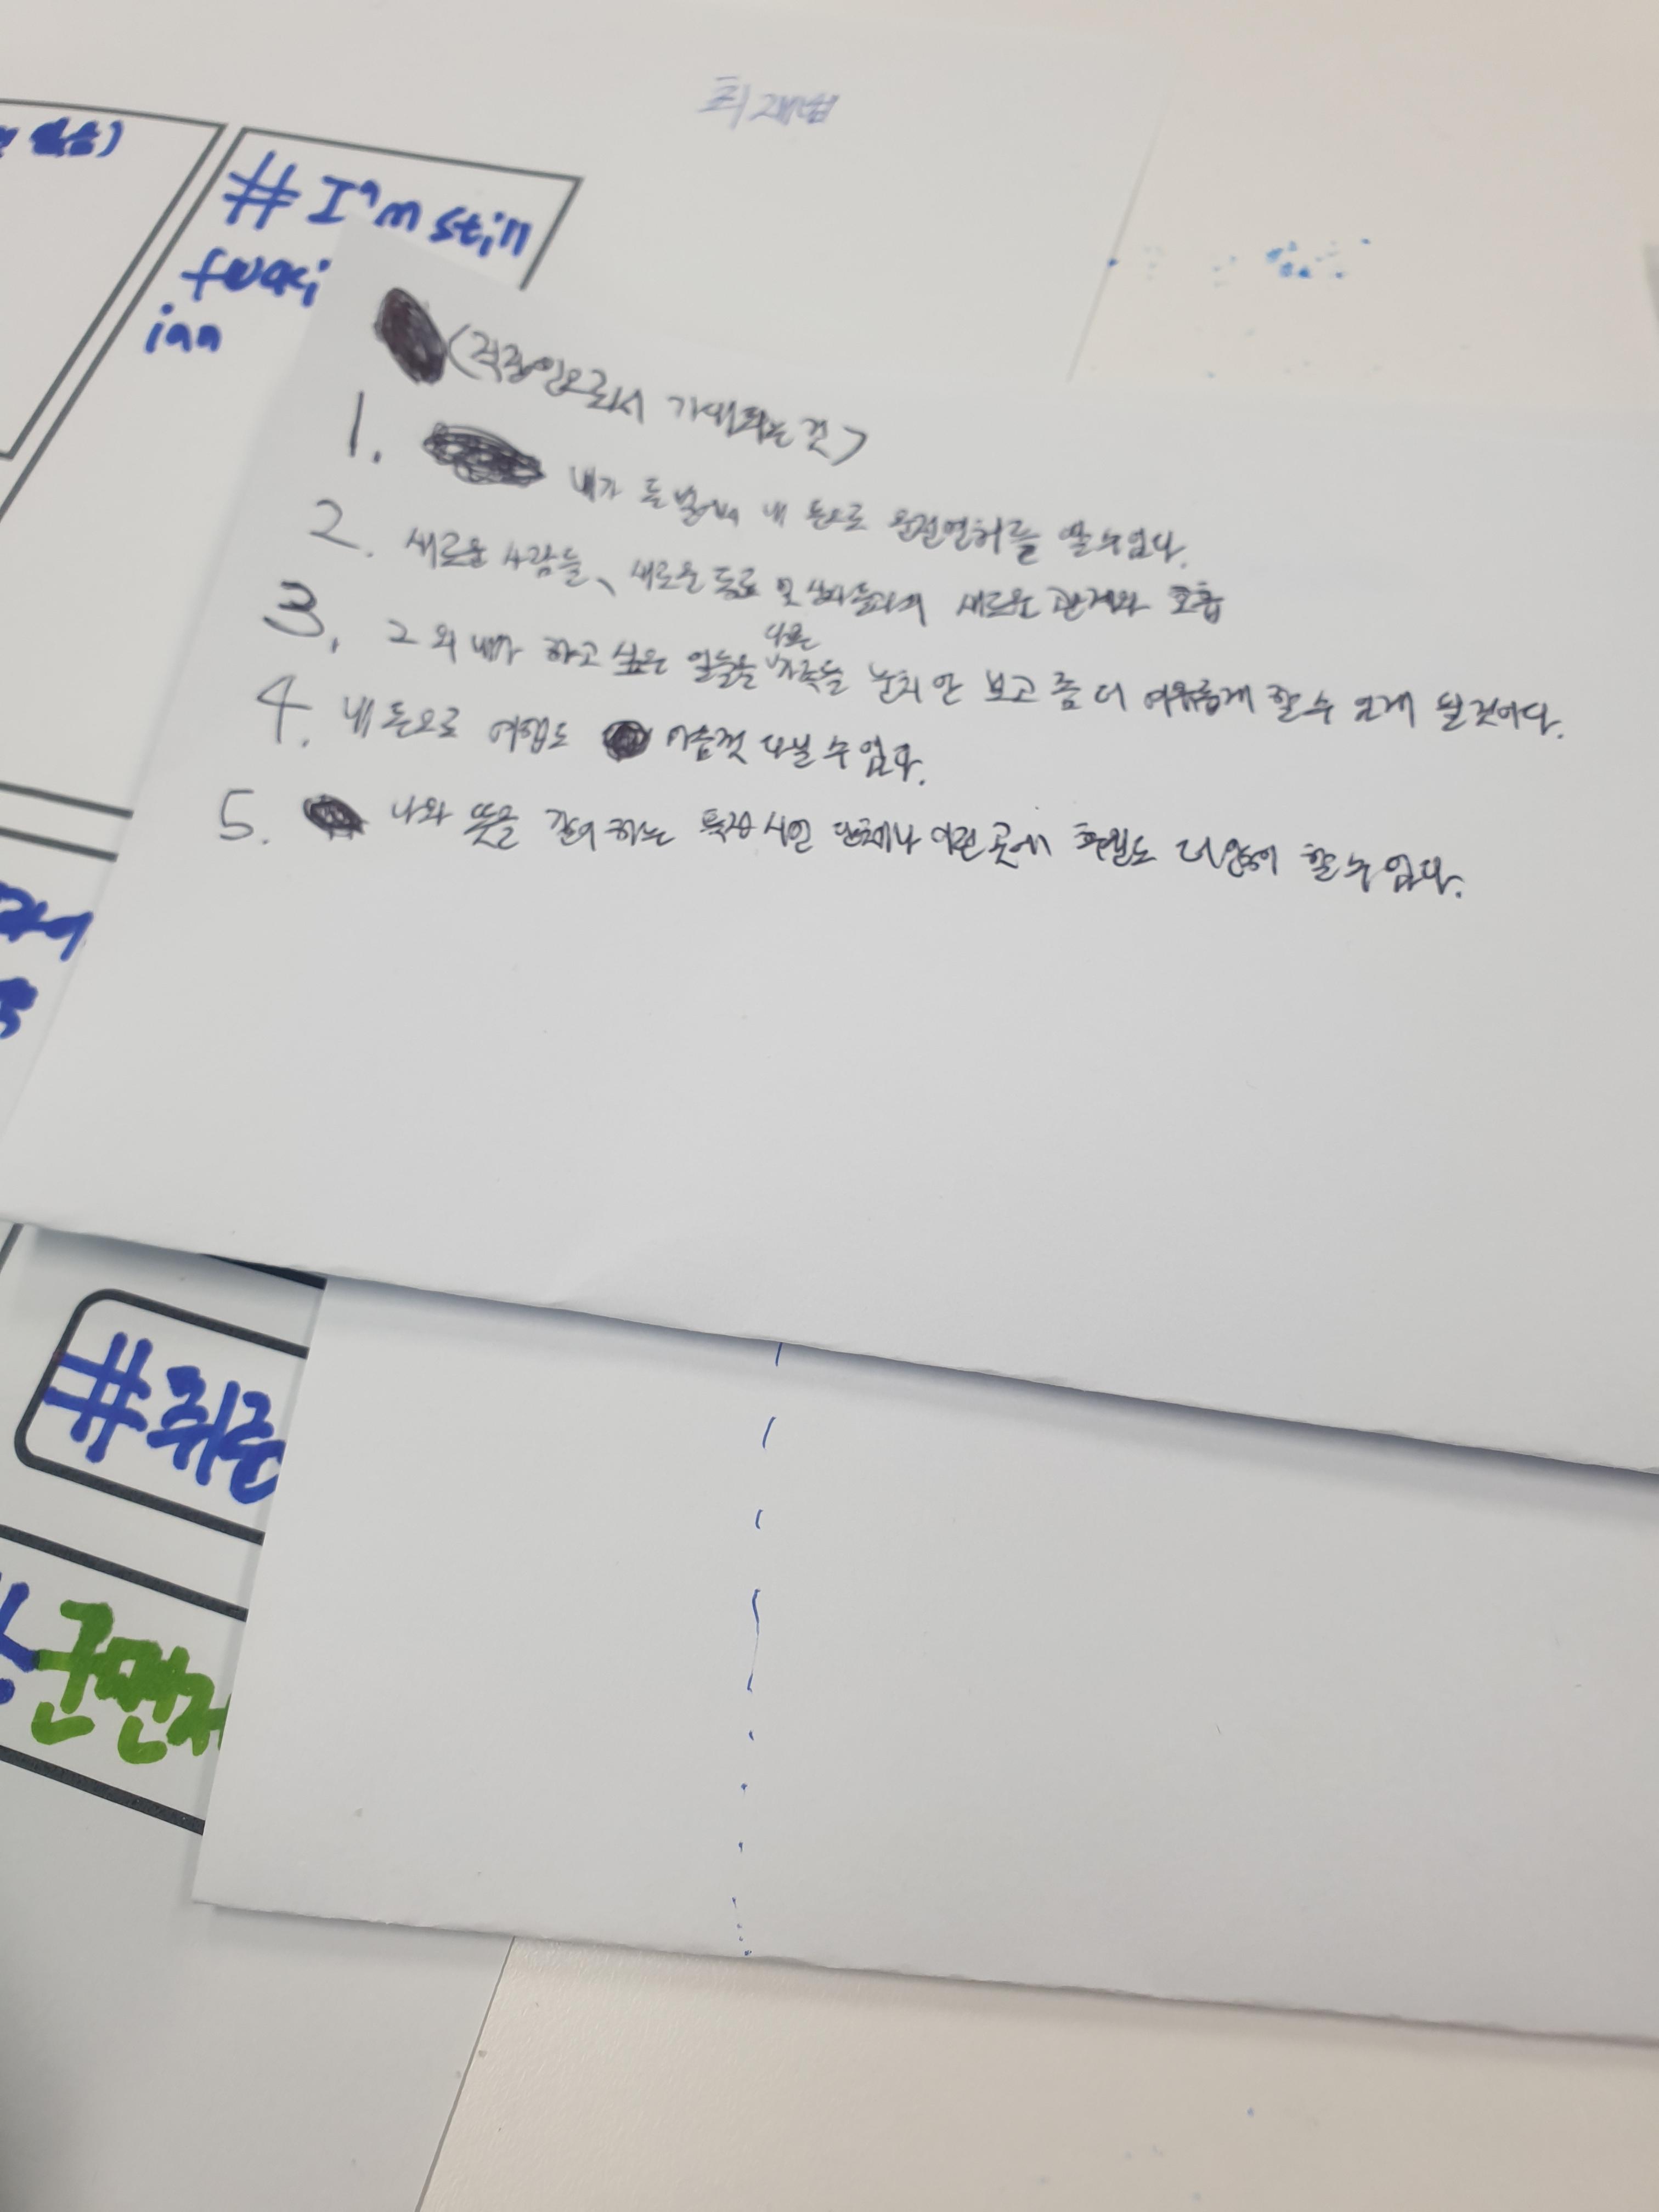 최재범
# I'm still
ian
(직장인으로서 기대되는 것)
1. 내가 돈 벌어서 내 돈으로 운전면허를 딸 수 있다.
2. 새로운 사람들, 새로운 동료 및 상사들과의 새로운 관계와 호흡
3. 그 외 내가 하고 싶은 일들을 다른 가족들 눈치 안 보고 좀 더 여유롭게 할 수 있게 될 것이다.
4. 내 돈으로 여행도 마음껏 다닐 수 있다.
5. 나와 뜻을 같이 하는 특정 시민 단체나 이런 곳에 후원도 더 많이 할 수 있다.
#취준
군면제